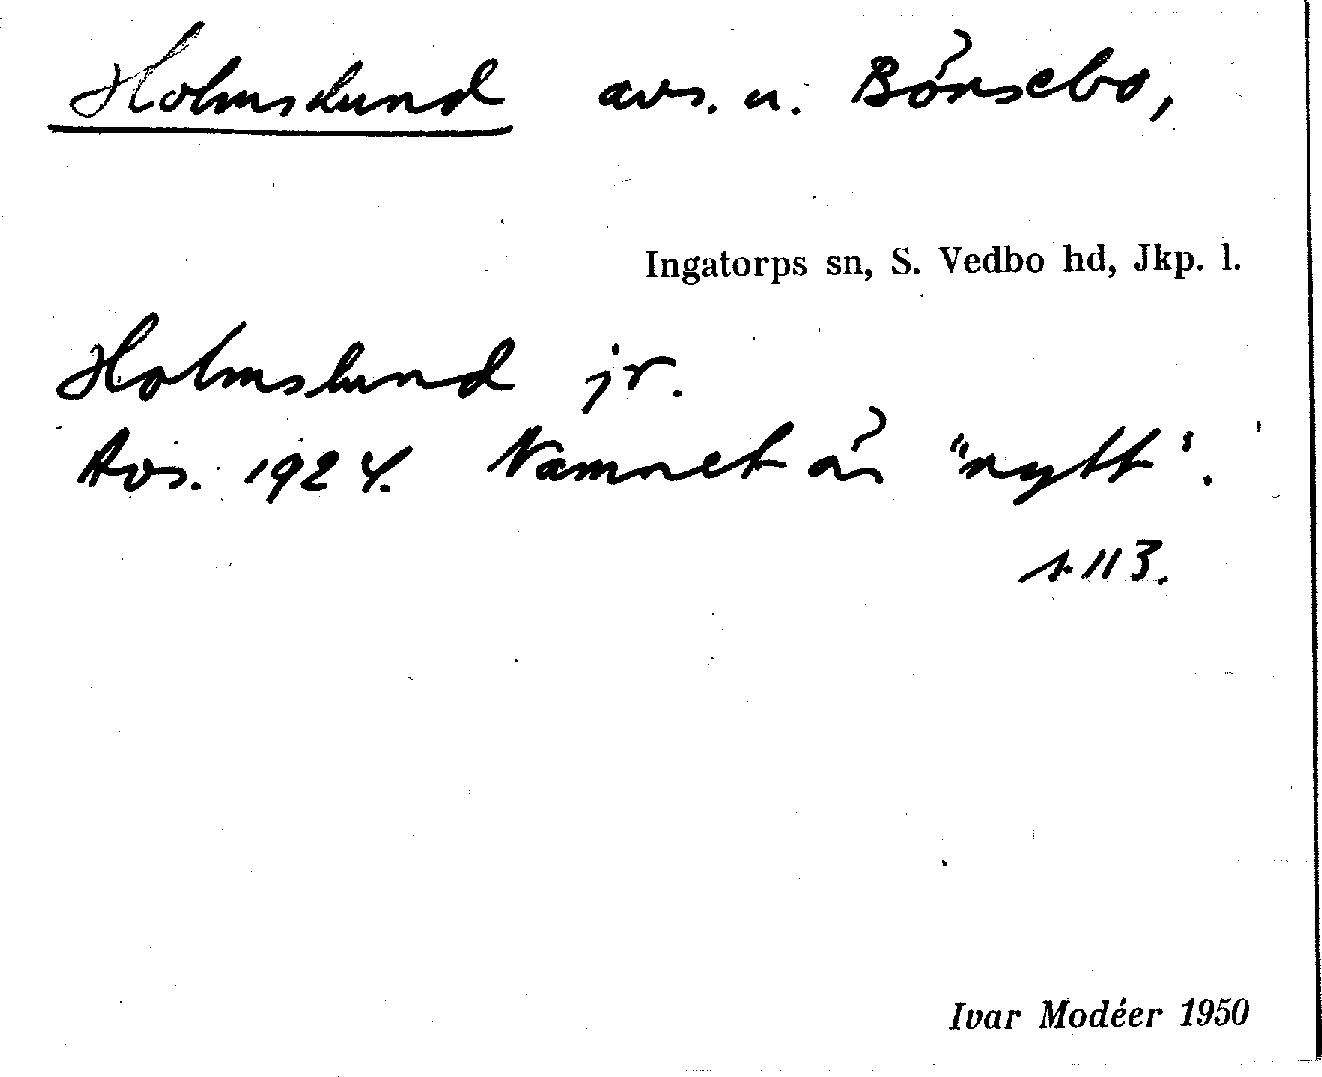 Holmslund avs. u. Börsebo,
Ingatorps sn, S. Vedbo hd, Jkp. l.
Holmslund jr.
Avs. 1924. Namnet är "nytt".
s. 113.
Ivar Modéer 1950